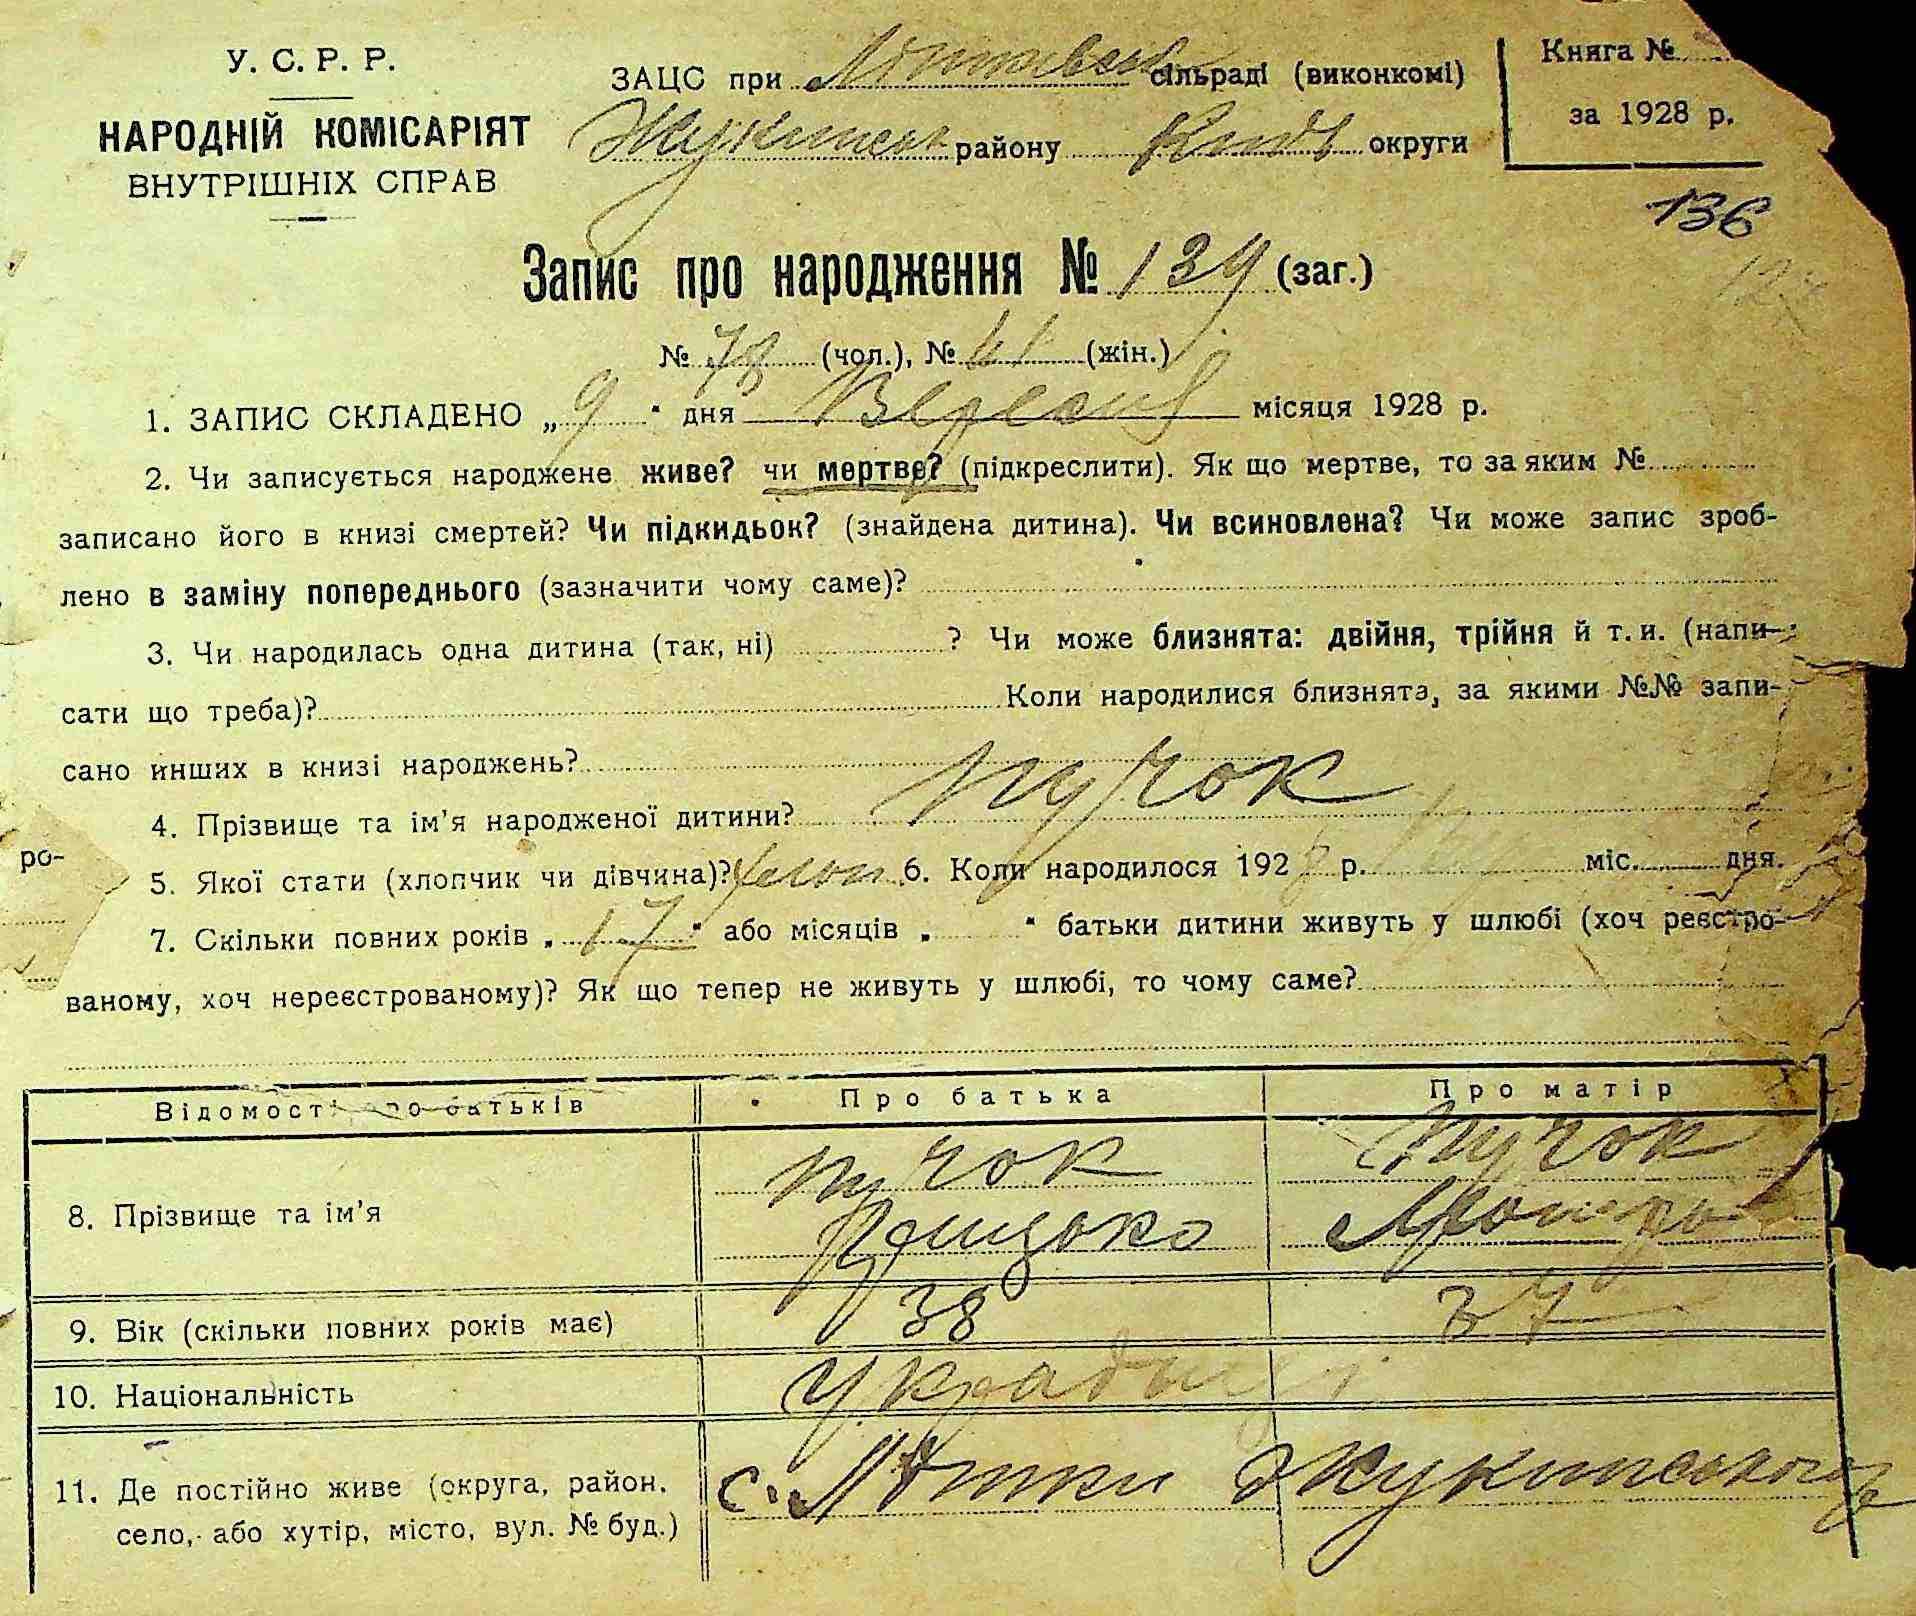 У. С. Р. Р.
НАРОДНІЙ КОМІСАРІЯТ
ВНУТРІШНІХ СПРАВ
ЗАЦС при сільраді (виконкомі)
району округи
Книга №
за 1928 р.
136
Запис про народження № 139 (заг.)
№ 78 (чол.), № 61 (жін.)
1. ЗАПИС СКЛАДЕНО „ 9 " дня Вересня місяця 1928 р.
2. Чи записується народжене живе? чи мертве? (підкреслити). Як що мертве, то за яким №
записано його в книзі смертей? Чи підкидьок? (знайдена дитина). Чи всиновлена? Чи може запис зроб-
лено в заміну попереднього (зазначити чому саме)?
3. Чи народилась одна дитина (так, ні) ? Чи може близнята: двійня, трійня й т. и. (напи-
сати що треба)? Коли народилися близнята, за якими №№ запи-
сано инших в книзі народжень?
4. Прізвище та ім'я народженої дитини? Пучок
ро-
5. Якої стати (хлопчик чи дівчина)? хлоп 6. Коли народилося 1928 р. міс. дня.
7. Скільки повних років „ 17 " або місяців „ " батьки дитини живуть у шлюбі (хоч реєстро-
ваному, хоч нереєстрованому)? Як що тепер не живуть у шлюбі, то чому саме?
Відомості про батьків Про батька Про матір
8. Прізвище та ім'я Пучок Пучок
9. Вік (скільки повних років має) 38 37
10. Національність
11. Де постійно живе (округа, район. с. Літки Жукинського
село, або хутір, місто, вул. № буд.)